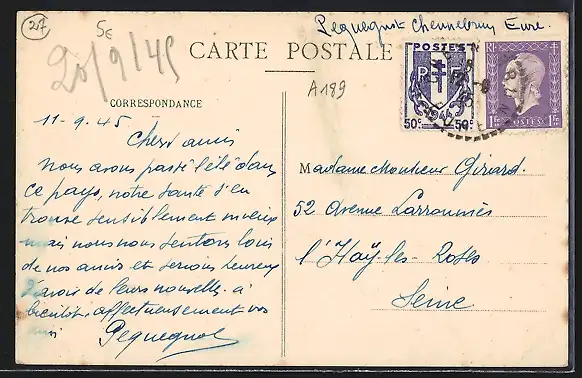 27
5€
Pequegnot Chennebrun Eure.
20/9/45
CARTE POSTALE
A189
POSTES
RF
50c 50c
RF
1Fr POSTES 1Fr
CORRESPONDANCE
11-9.45
Chers amis
Nous avons passé l'été dans
ce pays, notre santé s'en
trouve sensiblement mieux
mais nous nous sentons loin
de nos amis et serions heureux
d'avoir de leurs nouvelles. à
bientôt, affectueusement vos
amis
Pequegnot
Madame Monsieur Girard.
52 Avenue Larroumès
l'Haÿ-les-Roses
Seine